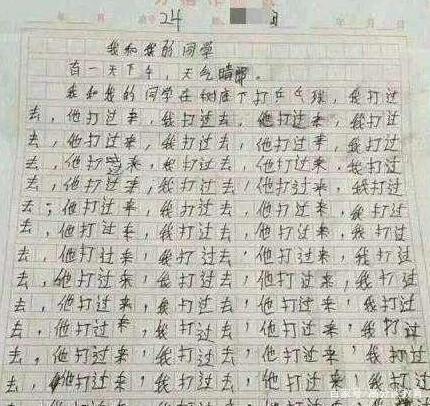 24
我和我的同学
有一天下午，天气晴
我和我的同学在树底下打乒乓球，我打过
去，他打过来，我打过去，他打过来，我打过
去，他打过来，我打过去，他打过来，我打过
去，他打过来，我打过去，他打过来，我打过
去，他打过来，我打过去，他打过来，我打过
去，他打过来，我打过去，他打过来，我打过
去，他打过来，我打过去，他打过来，我打过
去，他打过来，我打过去，他打过来，我打过
去，他打过来，我打过去，他打过来，我打过
去，他打过来，我打过去，他打过来，我打过
去，他打过来，我打过去，他打过来，我打过
去，他打过来，我打过去，他打过来，我打过
去，他打过来，我打过去，他打过来，我打过
打过来，我打过去，他打过来